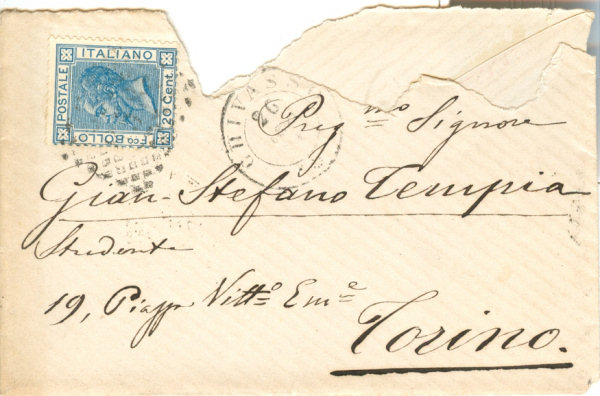 ITALIANO
POSTALE
20 Cent.
Fco BOLLO
CHIVASS
20
Preg mo Signore
Gian-Stefano Tempia
Studente
19, Piazza Vitto Eme
Torino.